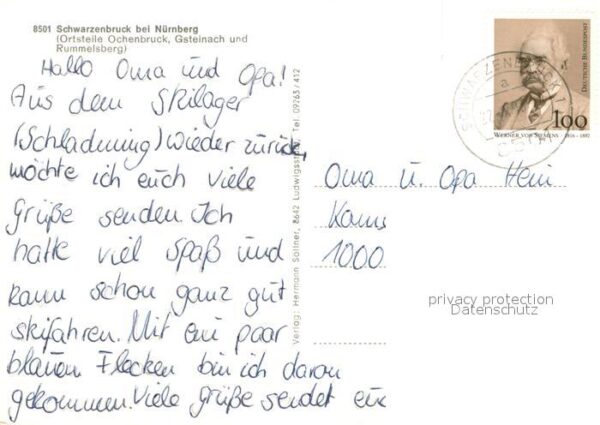 8501 Schwarzenbruck bei Nürnberg
(Ortsteile Ochenbruck, Gsteinach und
Rummelsberg)
Hallo Oma und Opa!
Aus dem Skilager
(Schladming) wieder zurück,
möchte ich euch viele
Grüße senden. Ich
hatte viel Spaß und
kann schon ganz gut
skifahren. Mit ein paar
blauen Flecken bin ich davon
gekommen. Viele Grüße sendet
Verlag: Hermann Söllner, 8642 Ludwigsstadt, Tel. 09263/412
DEUTSCHE BUNDESPOST
100
WERNER VON SIEMENS · 1816-1892
Oma u. Opa
1000
privacy protection
Datenschutz